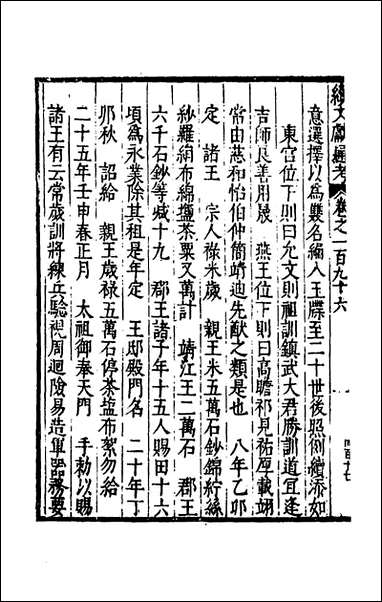 續文獻通考 卷之一百九十六
意選擇以為雙名編入玉牒至二十世後照例續添如
東宮位下則曰允文則祖訓鎮武大君勝訓道宜逢
吉師良善用晟 燕王位下則曰高瞻祁見祐厚載翊
常由慈和怡伯仲簡靖迪先猷之類是也 八年乙卯
定 諸王 宗人祿米歲 親王米五萬石鈔錦紵絲
紗羅絹布綿鹽茶粟又萬計 靖江王二萬石 郡王
六千石鈔等咸十九 郡王諸子年十五人賜田十六
頃為永業除其租是年定 王邸殿門名 二十年丁
卯秋 詔給 親王歲祿五萬石停茶塩布絮勿給
二十五年壬申春正月 太祖御奉天門 手勑以賜
諸王有云常歲訓將練兵驗視周迴險易造軍器務要